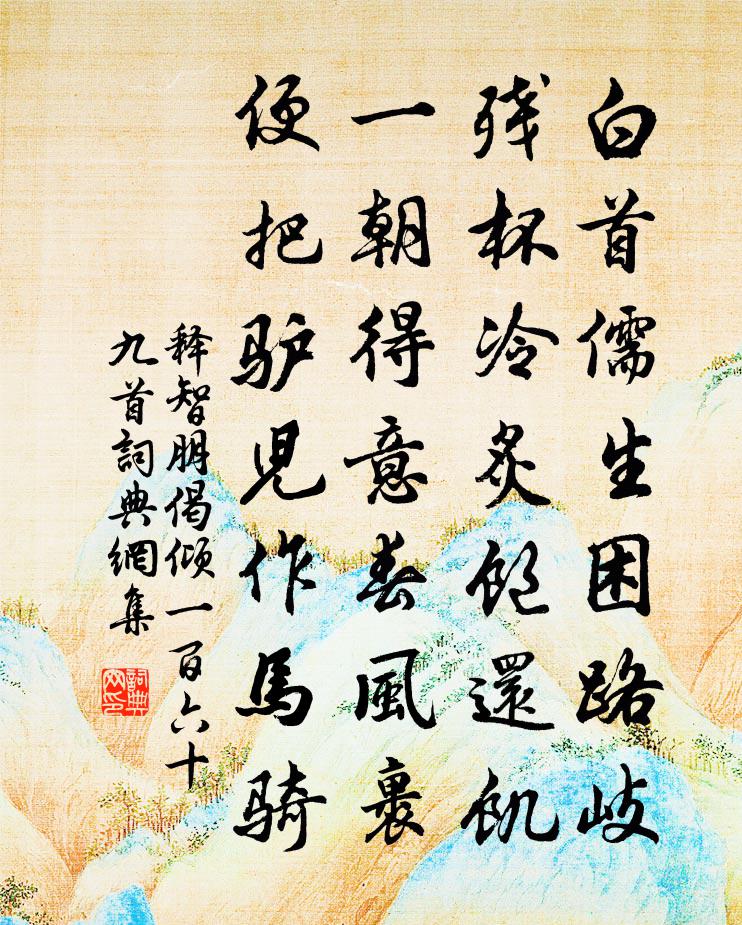 白首儒生困路岐
残杯冷炙饱還飢
一朝得意春風裏
便把驴兒作馬騎
释智朋偈倾一百六十
九首詞典網集
詞典網印